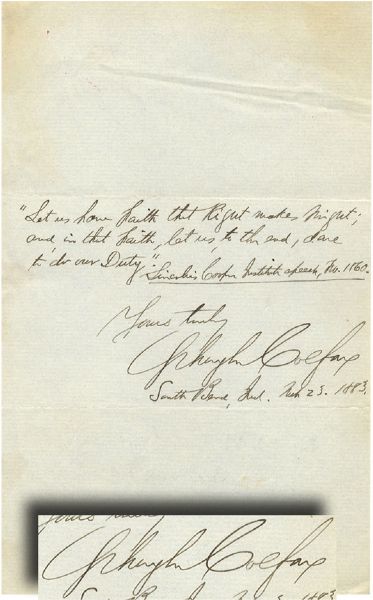 "Let us have Faith that Right makes Might;
and in that Faith, let us, to the end, dare
to do our Duty."
Lincoln's Cooper Institute speech, Feb. 1860.
Yours truly
Schuyler Colfax
South Bend, Ind. 23. 1883.
Yours truly
Schuyler Colfax
South Bend, Ind. 23. 1883.